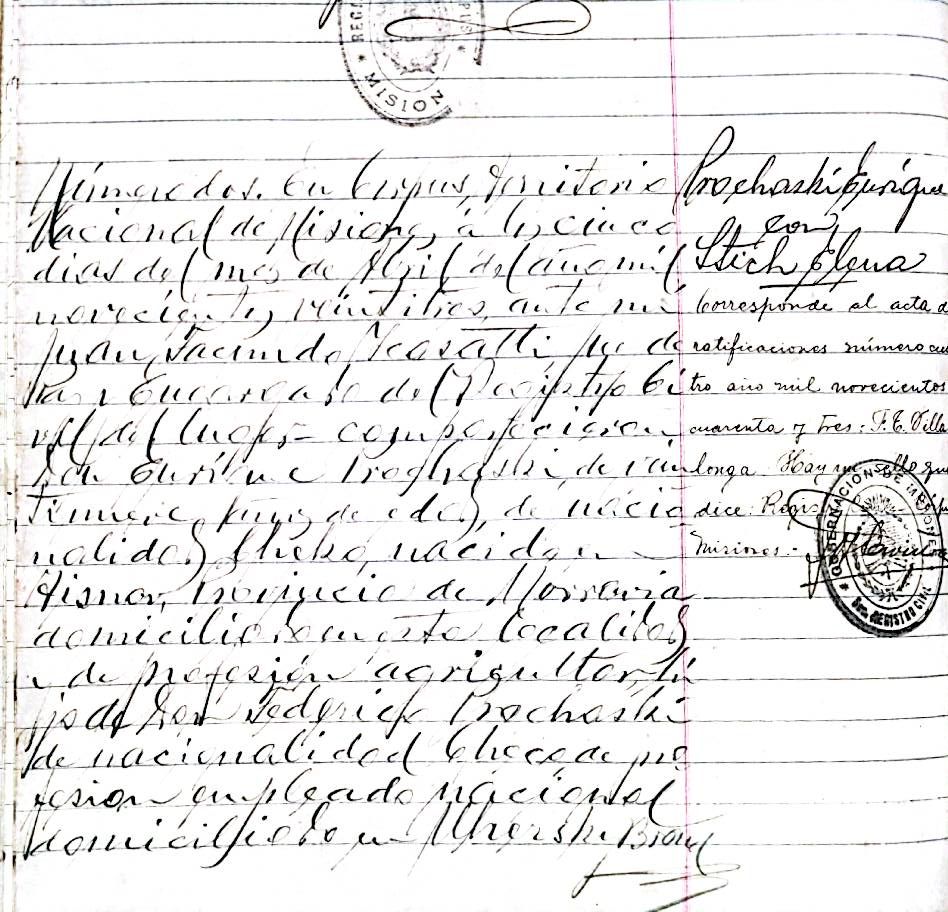 MISION
Número dos. En Corpus, Territorio
Nacional de Misiones, á los cinco
dias del mes de Abril del año mil
novecientos veintitres, ante mi
Juan Facundo Juez de
Paz y Encargado del Registro Ci
vil del lugar - comparecieron
Don Enrique Prochaski, de
nueve años de edad, de nacio
nalidad Checo, nacido en
Provincia de Morravia
domiciliado en esta localidad
y de profesión agricultor, hi
jo de Don Federico Prochaski
de nacionalidad Checo de pro
fesion empleado nacional
domiciliado en
Prochaski Enrique
con
Stich Elena
Corresponde al acta de
ratificaciones número cua
tro año mil novecientos
cuarenta y tres. F. E. Villa
longa. Hay un sello que
dice: Regis
Misiones.-
GOBERNACION DE MISIONES
REGISTRO CIVIL